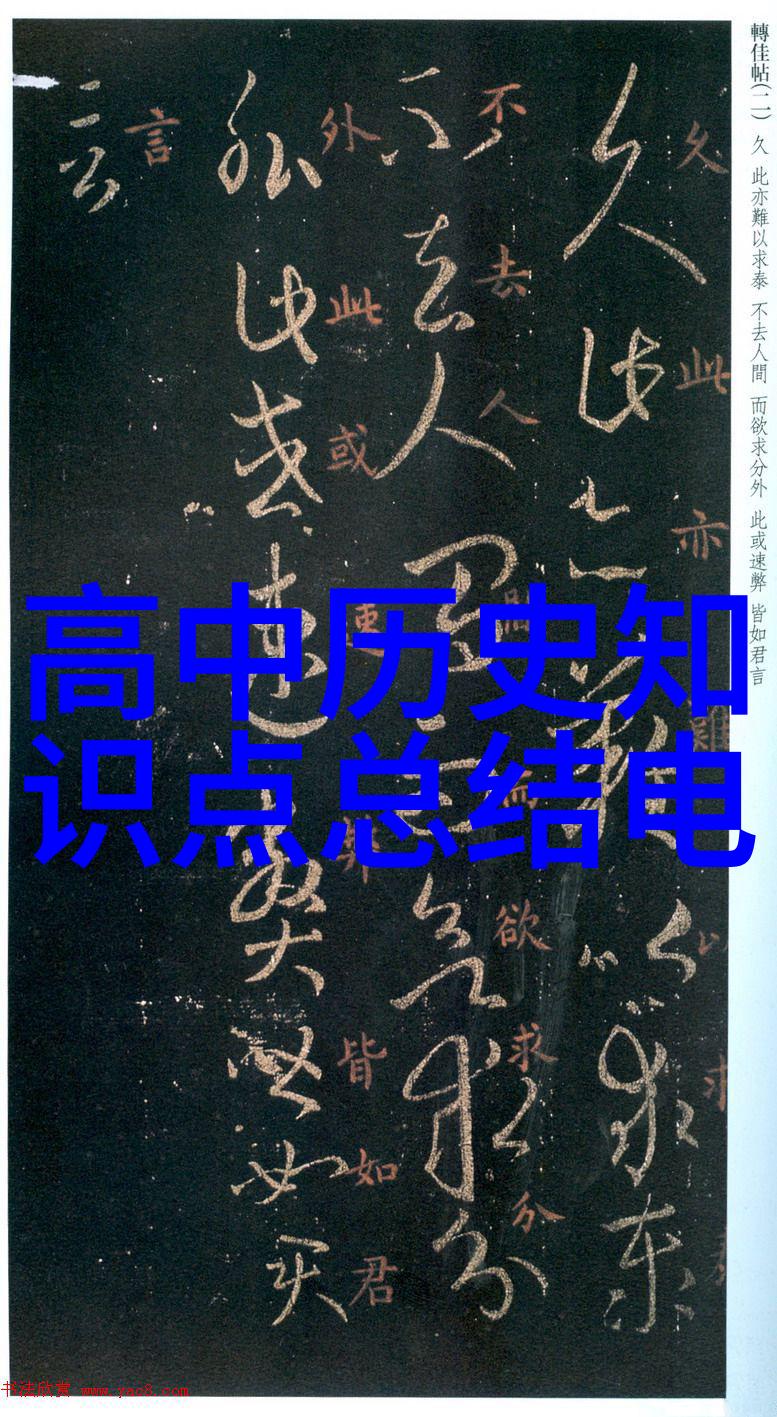 轉佳帖(二) 久 此亦難以求泰 不去人間 而欲求分外 此或速弊 皆如君言
久此亦難以求泰
不去人間而欲求分
外此或速弊皆如君
言
高中历史知
识点总结电
书法欣赏 www.yac8.com